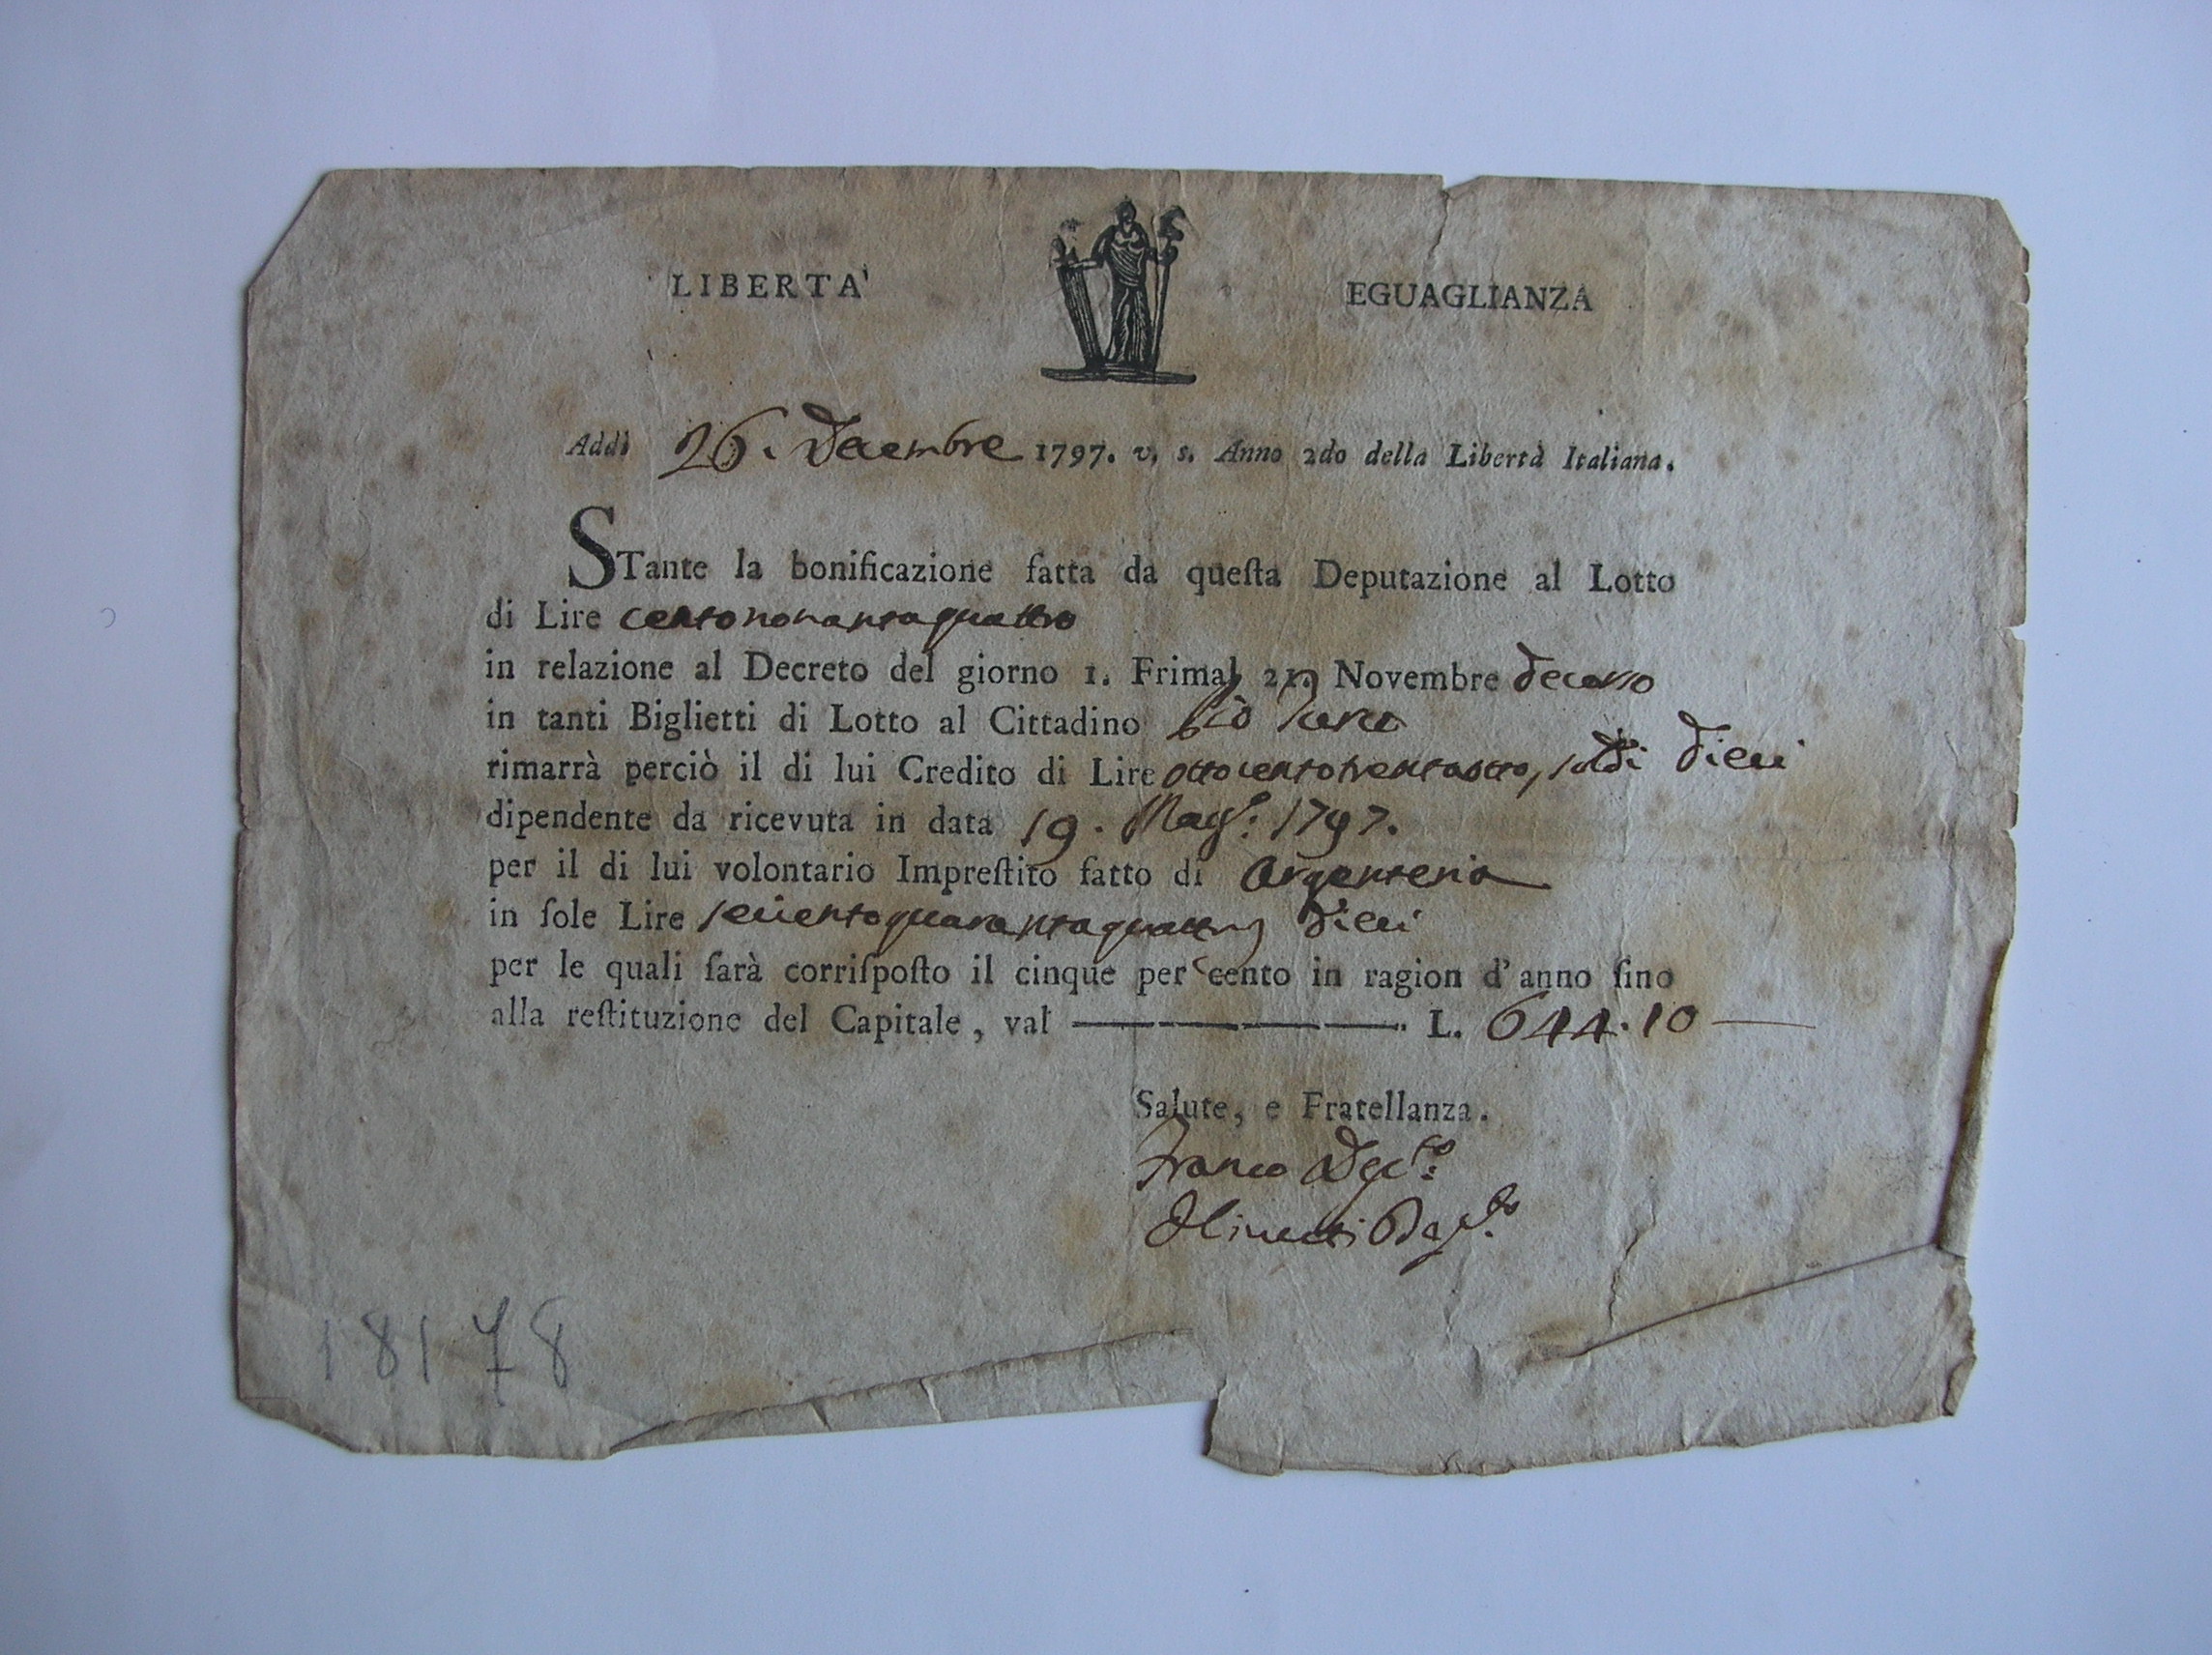 LIBERTA' EGUAGLIANZA
Addì 26. Decembre 1797. v. s. Anno 2do della Libertà Italiana.
STante la bonificazione fatta da queſta Deputazione al Lotto
di Lire centonovantaquattro
in relazione al Decreto del giorno 1. Frimal 21. Novembre decorso
in tanti Biglietti di Lotto al Cittadino
rimarrà perciò il di lui Credito di Lire ottocentotrentaotto, soldi dieci
dipendente da ricevuta in data 19. Magº: 1797.
per il di lui volontario Impreſtito fatto di Argenteria
in ſole Lire seicentoquarantaquattro dieci
per le quali ſarà corriſpoſto il cinque per cento in ragion d'anno ſino
alla reſtituzione del Capitale, val L. 644.10
Salute, e Fratellanza.
Franco
18178